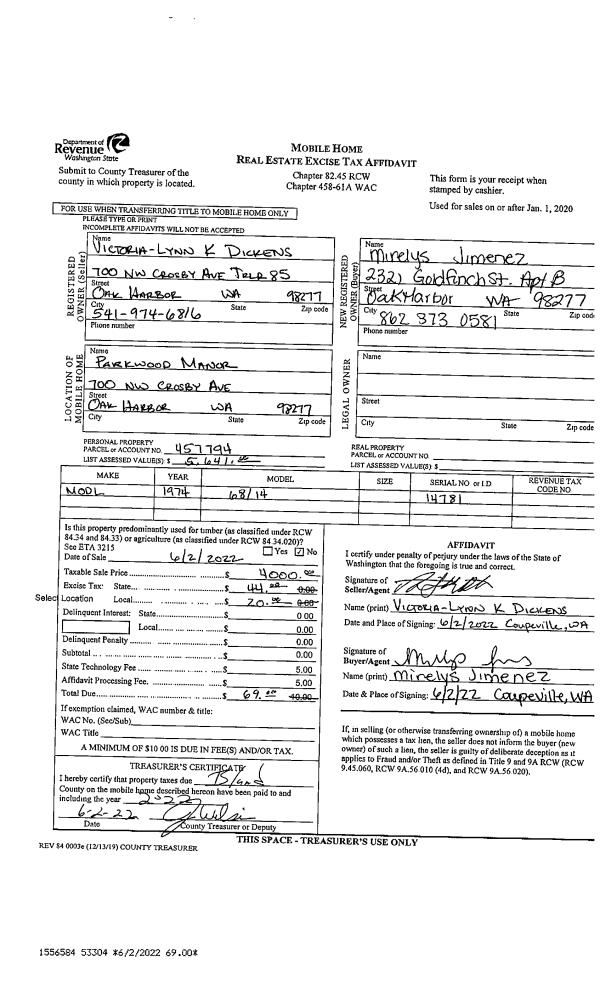 Department of
Revenue
Washington State
Submit to County Treasurer of the
county in which property is located.
MOBILE HOME
REAL ESTATE EXCISE TAX AFFIDAVIT
Chapter 82.45 RCW
Chapter 458-61A WAC
This form is your receipt when
stamped by cashier.
Used for sales on or after Jan. 1, 2020
FOR USE WHEN TRANSFERRING TITLE TO MOBILE HOME ONLY
PLEASE TYPE OR PRINT
INCOMPLETE AFFIDAVITS WILL NOT BE ACCEPTED
REGISTERED
OWNER (Seller)
Name
VICTORIA-LYNN K DICKENS
700 NW CROSBY AVE TRLR 85
Street
OAK HARBOR WA 98277
City State Zip code
541-974-6816
Phone number
NEW REGISTERED
OWNER (Buyer)
Name
Mirelys Jimenez
2321 Goldfinch St. Apt B
Street
Oak Harbor WA 98277
City State Zip code
862 373 0581
Phone number
LOCATION OF
MOBILE HOME
Name
PARKWOOD MANOR
700 NW CROSBY AVE
Street
OAK HARBOR WA 98277
City State Zip code
LEGAL OWNER
Name
Street
City State Zip code
PERSONAL PROPERTY
PARCEL or ACCOUNT NO. 457794
LIST ASSESSED VALUE(S): $ 5,641.00
REAL PROPERTY
PARCEL or ACCOUNT NO.
LIST ASSESSED VALUE(S): $
MAKE YEAR MODEL SIZE SERIAL NO or I D REVENUE TAX
CODE NO
MODL 1974 68/14 14781
Is this property predominantly used for timber (as classified under RCW
84.34 and 84.33) or agriculture (as classified under RCW 84.34.020)?
See ETA 3215 Yes ✓ No
Date of Sale 6/2/2022
Taxable Sale Price $ 4000.00
Excise Tax: State $ 44.00 0.00
Select Location Local $ 20.00 0.00
Delinquent Interest: State $ 0 00
Local $ 0.00
Delinquent Penalty $ 0.00
Subtotal $ 0.00
State Technology Fee $ 5.00
Affidavit Processing Fee. $ 5.00
Total Due $ 69.00 10.00
If exemption claimed, WAC number & title:
WAC No. (Sec/Sub)
WAC Title
A MINIMUM OF $10 00 IS DUE IN FEE(S) AND/OR TAX.
TREASURER'S CERTIFICATE
I hereby certify that property taxes due Island
County on the mobile home described hereon have been paid to and
including the year 2022
6-2-22
Date County Treasurer or Deputy
AFFIDAVIT
I certify under penalty of perjury under the laws of the State of
Washington that the foregoing is true and correct.
Signature of
Seller/Agent
Name (print) VICTORIA-LYNN K DICKENS
Date and Place of Signing: 6/2/2022 Coupeville, WA
Signature of
Buyer/Agent
Name (print) Mirelys Jimenez
Date & Place of Signing: 6/2/22 Coupeville, WA
If, in selling (or otherwise transferring ownership of) a mobile home
which possesses a tax lien, the seller does not inform the buyer (new
owner) of such a lien, the seller is guilty of deliberate deception as it
applies to Fraud and/or Theft as defined in Title 9 and 9A RCW (RCW
9.45.060, RCW 9A.56 010 (4d), and RCW 9A.56.020).
THIS SPACE - TREASURER'S USE ONLY
REV 84 0003e (12/13/19) COUNTY TREASURER
1556584 53304 *6/2/2022 69.00*